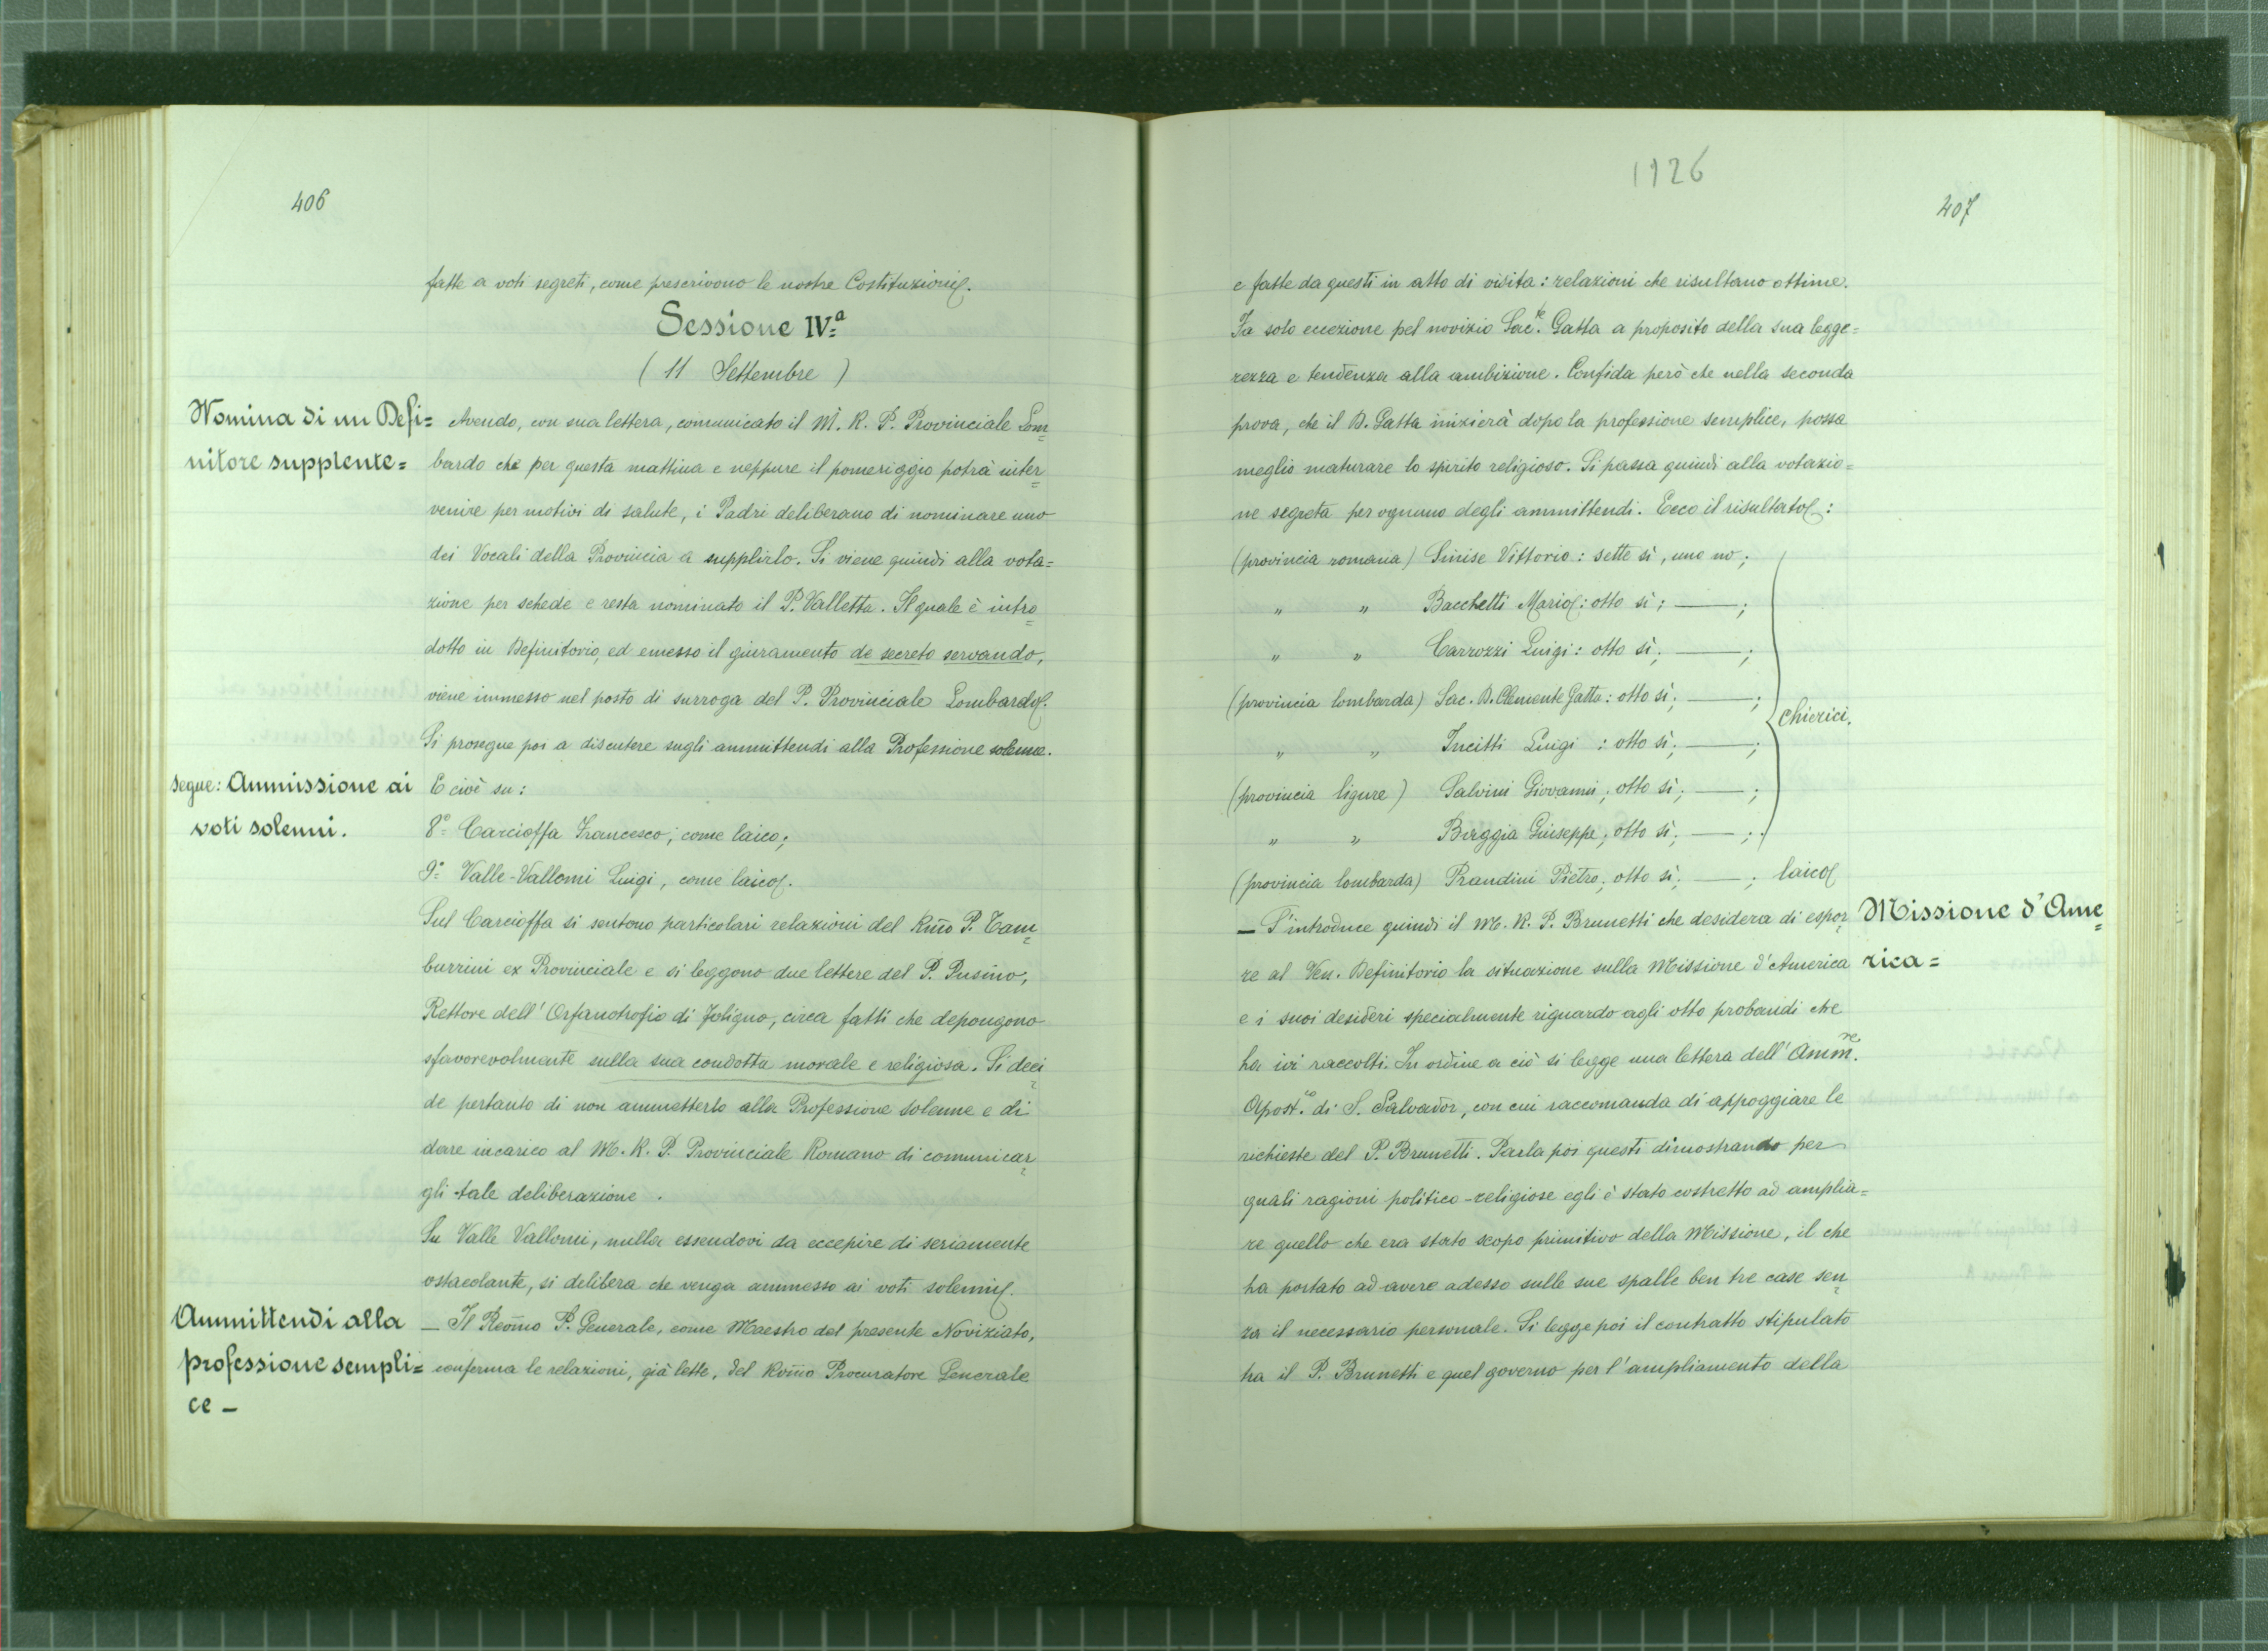 406
fatte a voti segreti, come prescrivono le nostre Costituzioni.
Sessione IV.a
( 11 Settembre )
Nomina di un Defi=
nitore supplente=
Avendo, con sua lettera, comunicato il M. R. P. Provinciale Lom=
bardo che per questa mattina e neppure il pomeriggio potrà inter=
venire per motivi di salute, i Padri deliberano di nominare uno
dei Vocali della Provincia a supplirlo. Si viene quindi alla vota=
zione per schede e resta nominato il P. Valletta. Il quale è intro=
dotto in Definitorio, ed emesso il giuramento de secreto servando,
viene immesso nel posto di surroga del P. Provinciale Lombardo.
Si prosegue poi a discutere sugli ammittendi alla Professione solenne.
segue: Ammissione ai
voti solenni.
E cioè su:
8° Carcioffa Francesco; come laico;
9° Valle-Vallomi Luigi, come laico.
Sul Carcioffa si sentono particolari relazioni del Rm̃o P. Tam=
burrini ex Provinciale e si leggono due lettere del P. Pusino,
Rettore dell' Orfanotrofio di Foligno, circa fatti che depongono
sfavorevolmente sulla sua condotta morale e religiosa. Si deci=
de pertanto di non ammetterlo alla Professione solenne e di
dare incarico al M. R. P. Provinciale Romano di comunicar=
gli tale deliberazione.
Su Valle Vallomi, nulla essendovi da eccepire di seriamente
ostacolante, si delibera che venga ammesso ai voti solenni.
Ammittendi alla
professione sempli=
ce –
– Il Reom̃o P. Generale, come Maestro del presente Noviziato,
conferma le relazioni, già lette, del Rom̃o Procuratore Generale
1926
407
e fatte da questi in atto di visita: relazioni che risultano ottime.
Fa solo eccezione pel novizio Sac.te Gatta a proposito della sua legge=
rezza e tendenza alla ambizione. Confida però che nella seconda
prova, che il D. Gatta inizierà dopo la professione semplice, possa
meglio maturare lo spirito religioso. Si passa quindi alla votazio=
ne segreta per ognuno degli ammittendi. Ecco il risultato:
(provincia romana) Sinise Vittorio: sette sì, uno no;
" " Bacchetti Mario: otto sì; —;
" " Carrozzi Luigi: otto sì; —;
(provincia lombarda) Sac. D. Clemente Gatta: otto sì; —;
chierici.
" " Incitti Luigi : otto sì; —;
(provincia ligure) Salvini Giovanni; otto sì; —;
" " Boeggia Giuseppe; otto sì; —;
(provincia lombarda) Prandini Pietro; otto sì; —; laico
Missione d'Ame=
rica=
– S'introduce quindi il M. R. P. Brunetti che desidera di espor=
re al Ven. Definitorio la situazione sulla Missione d'America
e i suoi desideri specialmente riguardo agli otto probandi che
ha ivi raccolti. In ordine a ciò si legge una lettera dell' Amm.re
Apost.co di S. Salvador, con cui raccomanda di appoggiare le
richieste del P. Brunetti. Parla poi questi dimostrando per
quali ragioni politico-religiose egli è stato costretto ad amplia=
re quello che era stato scopo primitivo della Missione, il che
ha portato ad avere adesso sulle sue spalle ben tre case sen=
za il necessario personale. Si legge poi il contratto stipulato
tra il P. Brunetti e quel governo per l'ampliamento della